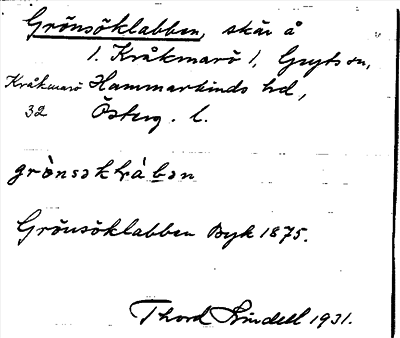 Grönsöklabben, skär å
1. Kråkmarö 1, Gryts sn,
Kråkmarö Hammarkinds hd,
32 Österg. l.
grònsəklàbən
Grönsöklabben Byk 1875.
Thord Lindell 1931.